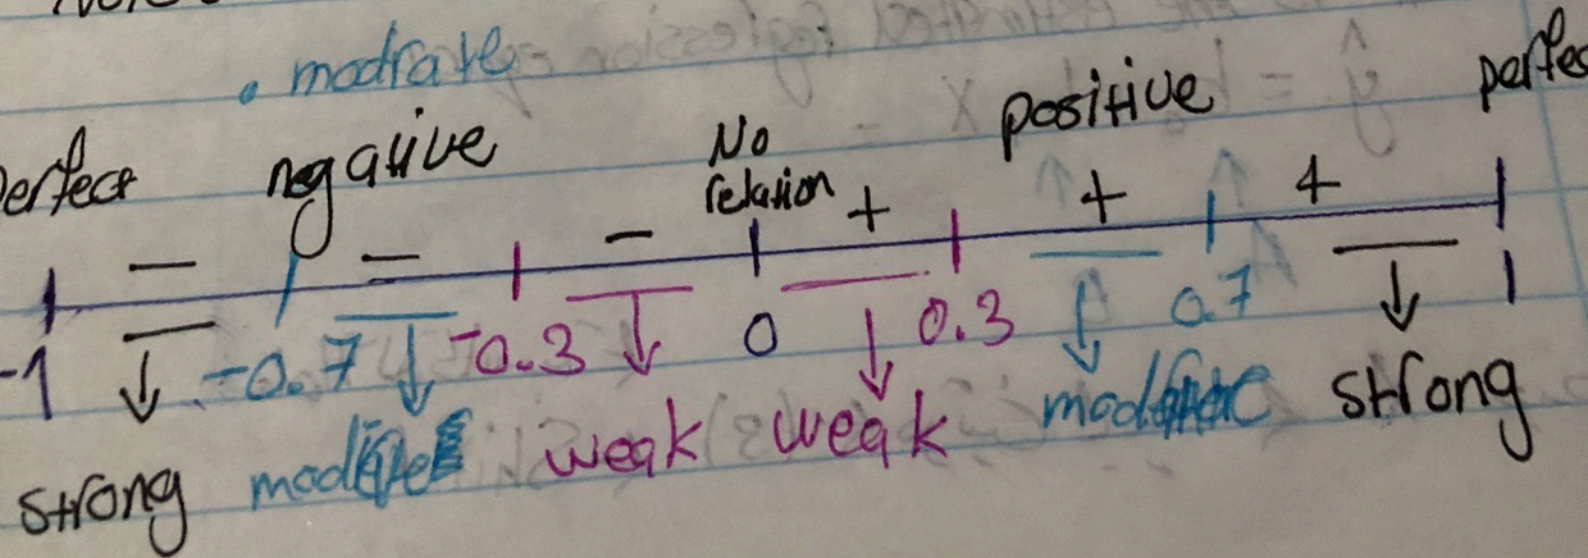 . modrate
perfect negative No relation positive perfec
− − − + + +
-1 -0.7 -0.3 0 0.3 0.7 1
strong weak weak strong